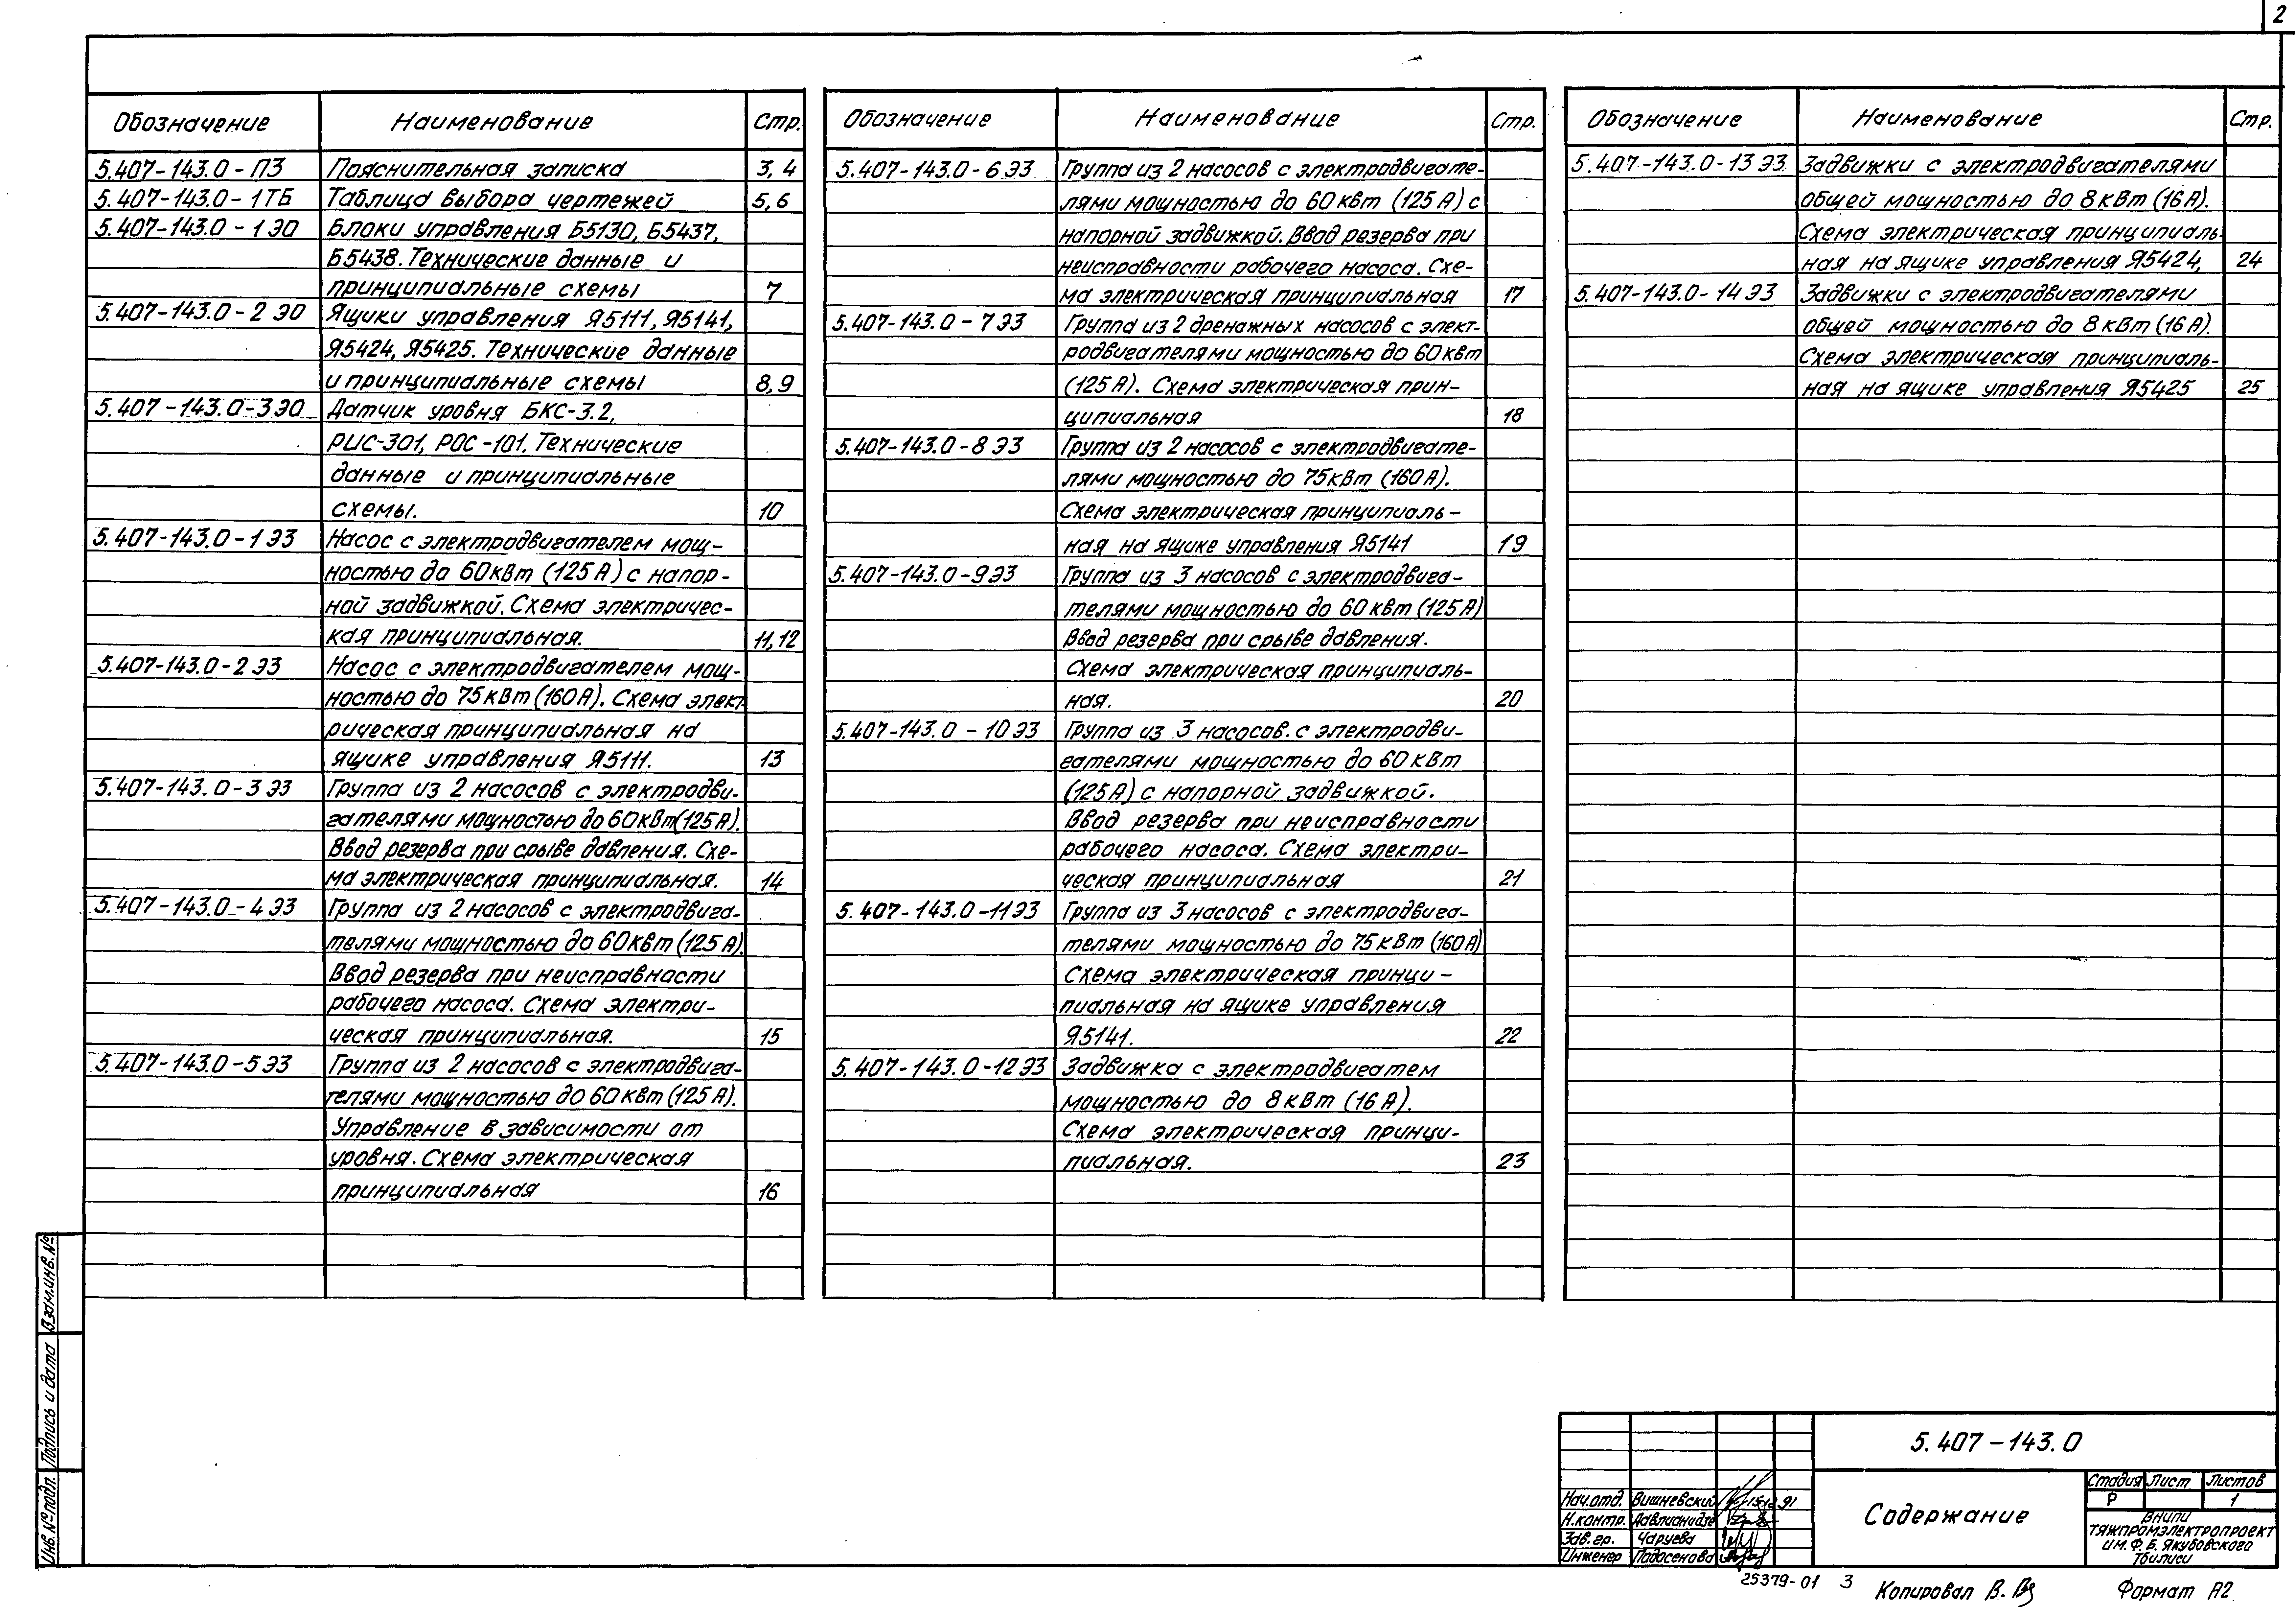 2
Обозначение Наименование Стр.
5.407-143.0-ПЗ Пояснительная записка 3, 4
5.407-143.0-1ТБ Таблица выбора чертежей 5,6
5.407-143.0-1ЭО Блоки управления Б5130, Б5437,
Б5438. Технические данные и
принципиальные схемы 7
5.407-143.0-2 ЭО Ящики управления Я5111, Я5141,
Я5424, Я5425. Технические данные
и принципиальные схемы 8,9
5.407-143.0-3ЭО Датчик уровня БКС-3.2,
РИС-301, РОС-101. Технические
данные и принципиальные
схемы. 10
5.407-143.0-1ЭЗ Насос с электродвигателем мощ-
ностью до 60кВт (125 А) с напор-
ной задвижкой. Схема электричес-
кая принципиальная. 11,12
5.407-143.0-2ЭЗ Насос с электродвигателем мощ-
ностью до 75кВт (160А). Схема элект-
рическая принципиальная на
ящике управления Я5111. 13
5.407-143.0-3ЭЗ Группа из 2 насосов с электродви-
гателями мощностью до 60кВт(125А).
Ввод резерва при срыве давления. Схе-
ма электрическая принципиальная. 14
5.407-143.0-4ЭЗ Группа из 2 насосов с электродвига-
телями мощностью до 60кВт (125А).
Ввод резерва при неисправности
рабочего насоса. Схема электри-
ческая принципиальная. 15
5.407-143.0-5ЭЗ Группа из 2 насосов с электродвига-
телями мощностью до 60кВт (125А).
Управление в зависимости от
уровня. Схема электрическая
принципиальная 16
Обозначение Наименование Стр.
5.407-143.0-6ЭЗ Группа из 2 насосов с электродвигате-
лями мощностью до 60кВт (125А) с
напорной задвижкой. Ввод резерва при
неисправности рабочего насоса. Схе-
ма электрическая принципиальная 17
5.407-143.0-7ЭЗ Группа из 2 дренажных насосов с элект-
родвигателями мощностью до 60кВт
(125А). Схема электрическая прин-
ципиальная 18
5.407-143.0-8ЭЗ Группа из 2 насосов с электродвигате-
лями мощностью до 75кВт (160А).
Схема электрическая принципиаль-
ная на ящике управления Я5141 19
5.407-143.0-9ЭЗ Группа из 3 насосов с электродвига-
телями мощностью до 60кВт (125А)
Ввод резерва при срыве давления.
Схема электрическая принципиаль-
ная. 20
5.407-143.0-10ЭЗ Группа из 3 насосов. с электродви-
гателями мощностью до 60кВт
(125А) с напорной задвижкой.
Ввод резерва при неисправности
рабочего насоса. Схема электри-
ческая принципиальная 21
5.407-143.0-11ЭЗ Группа из 3 насосов с электродвига-
телями мощностью до 75кВт (160А)
Схема электрическая принци-
пиальная на ящике управления
Я5141. 22
5.407-143.0-12ЭЗ Задвижка с электродвигатем
мощностью до 8кВт (16 А).
Схема электрическая принци-
пиальная. 23
Обозначение Наименование Стр.
5.407-143.0-13ЭЗ Задвижки с электродвигателями
общей мощностью до 8кВт (16А).
Схема электрическая принципиаль-
ная на ящике управления Я5424, 24
5.407-143.0-14ЭЗ Задвижки с электродвигателями
общей мощностью до 8кВт (16А).
Схема электрическая принципиаль-
ная на ящике управления Я5425 25
Взам.инв.№
Подпись и дата
Инв.№подл.
5.407-143.0
Содержание
Стадия Лист Листов
Р 1
ВНИПИ
ТЯЖПРОМЭЛЕКТРОПРОЕКТ
ИМ. Ф. Б. Якубовского
Тбилиси
Нач.отд. Вишневский 15.12.91
Н.контр. Давлианидзе
Зав.гр. Чаруева
Инженер
25379-01 3
Копировал В.
Формат А2